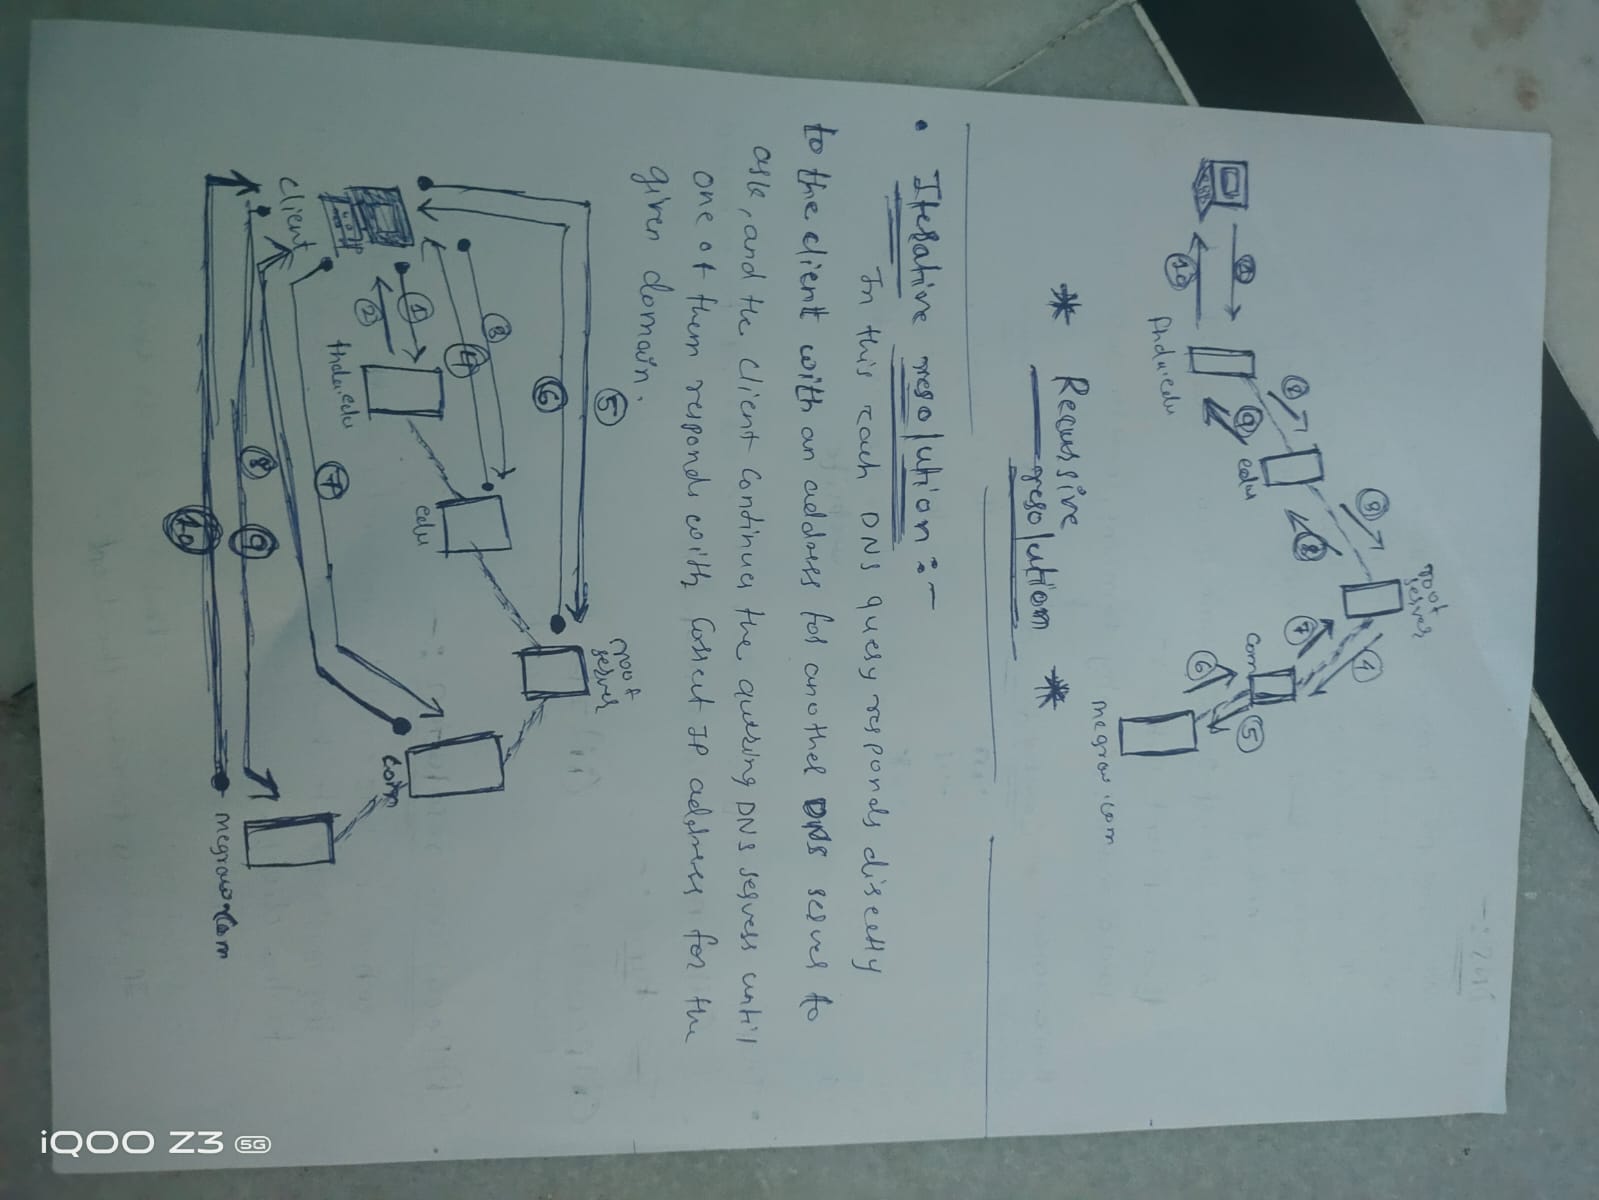 root
server
3
4
2
8
7
edu
1
9
com
5
10
6
fhda.edu
megraw.com
* Recussive
resolution *
• Iterative resolution :-
In this each DNS query responds directly
to the client with an address for another DNS server to
ask, and the client continues the quering DNS servers until
one of them responds with correct IP address for the
given domain.
5
root
server
6
3
4
edu
1
2
com
fhda.edu
7
client
8
9
megraw.com
10
iQOO Z3 5G